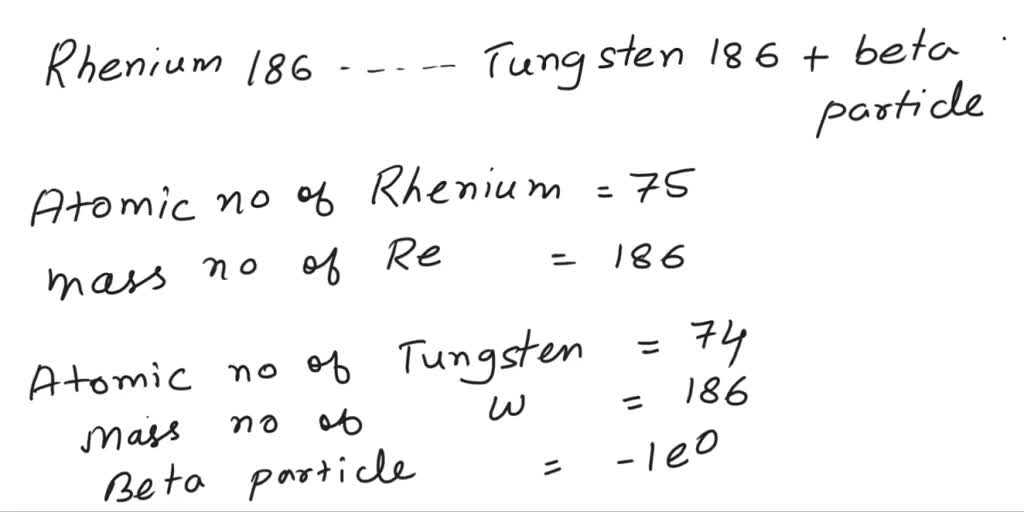 Rhenium 186 ------ Tungsten 186 + beta
particle
Atomic no of Rhenium = 75
mass no of Re = 186
Atomic no of Tungsten = 74
mass no of W = 186
Beta particle = -1e0